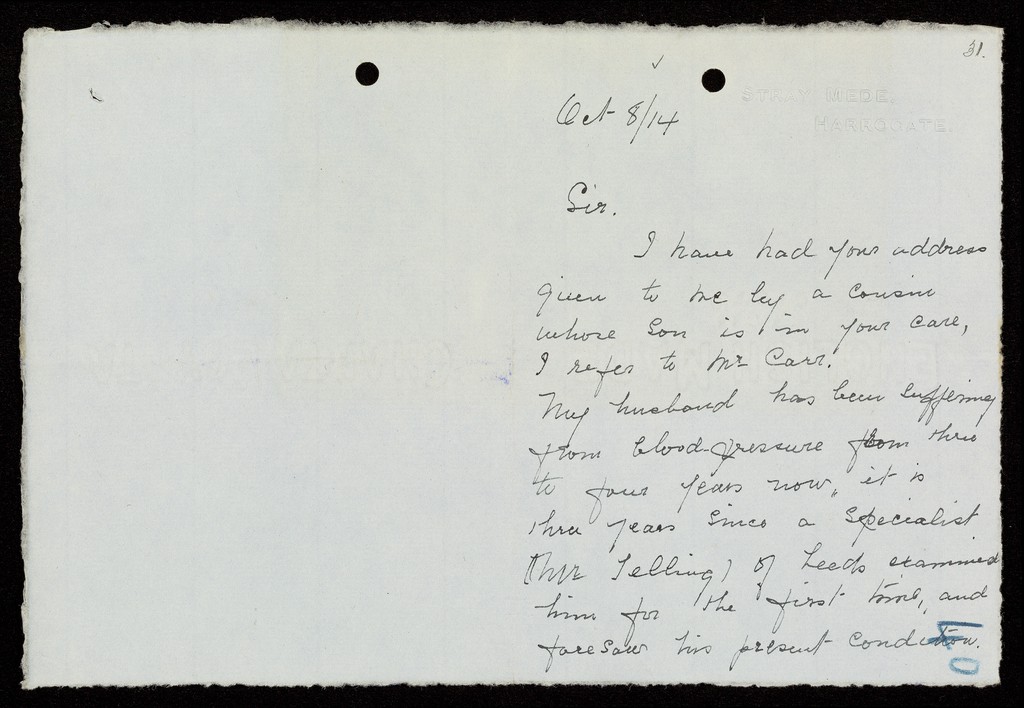 31.
STRAY MEDE,
HARROGATE.
Oct 8/14
Sir.
I have had your address
given to me by a cousin
whose son is in your care,
I refer to Mr Carr.
My husband has been suffering
from blood-pressure from three
to four years now, it is
three years since a specialist
(Mr Telling) of Leeds examined
him for the first time, and
foresaw his present condition.